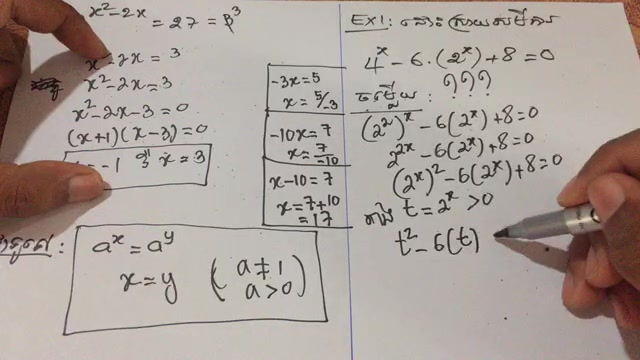 x² - 2x = 27 = 3³
x² - 2x = 3
x² - 2x = 3
x² - 2x - 3 = 0
(x+1)(x-3) = 0
= -1 x = 3
a^x = a^y
x = y (a ≠ 1
a > 0)
-3x = 5
x = 5/-3
-10x = 7
x = 7/-10
x - 10 = 7
x = 7 + 10
= 17
EX1: ដោះស្រាយសមីការ
4^x - 6·(2^x) + 8 = 0
???
ចម្លើយ:
(2²)^x - 6(2^x) + 8 = 0
2^2x - 6(2^x) + 8 = 0
(2^x)² - 6(2^x) + 8 = 0
តាង t = 2^x > 0
t² - 6(t)